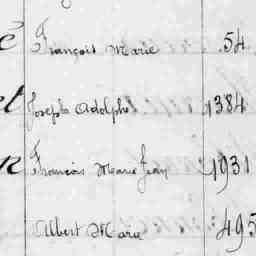 é François Marie 54
et Joseph Adolphe 1384
n François Marie Jean 1931
Albert Marie 495